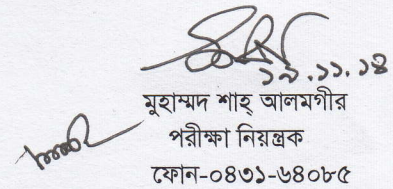 ১৯.১১.১৪
মুহাম্মদ শাহ্ আলমগীর
পরীক্ষা নিয়ন্ত্রক
ফোন-০৪৩১-৬৪০৮৫